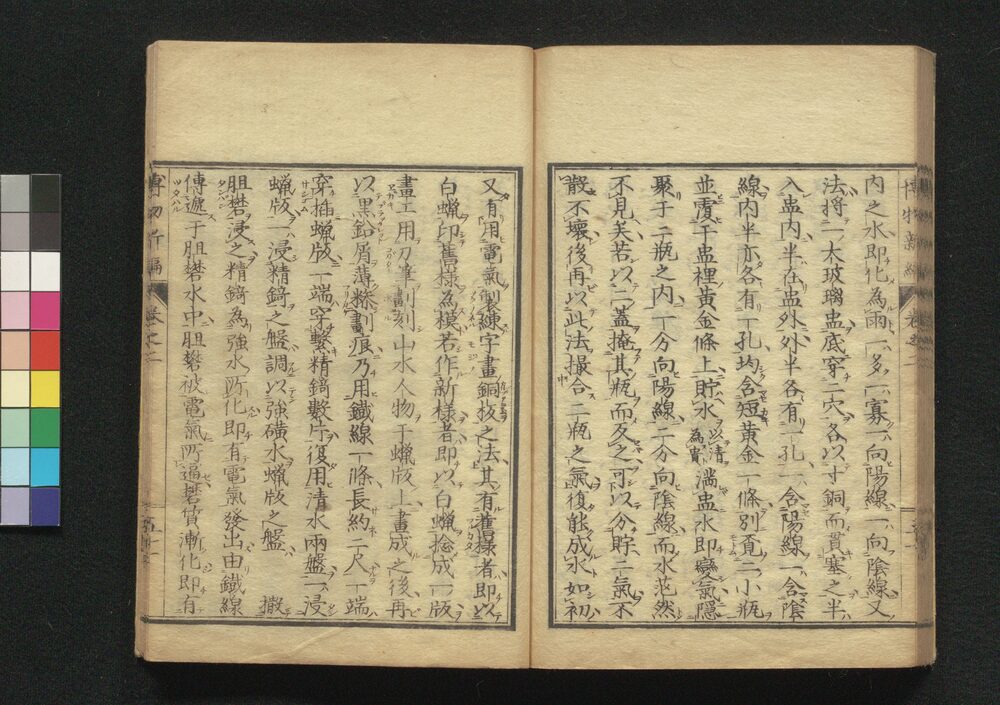 博物新編 巷之二
内之水即化為雨一多一寡一向陽線一向陰線又
法將一大玻璃盅底穿二穴各以寸銅而貫塞之半
入盅内半在盅外外半各有一孔一含陽線一含陰
線内半亦各有一孔均含短黄金一條別覔二小瓶
並覆于盅裡黄金條上貯水以清為貴滿盅水即變氣隱
聚于二瓶之内一分向陽線二分向陰線而水茫然
不見矣若以二蓋掩其瓶而反之可以分貯二氣不
散不壞後再以此法撮合二瓶之氣復能成水如初
又有用電氣製練字畫銅板之法其有舊樣者即以
白蝋印舊様為模若作新様者即以白蝋捻成一版
畫工用刀筆劃刻山水人物于蝋版上畫成之後再
以黒鉛屑薄糝劃痕乃用鐵線一條長約二尺一端
穿插蝋版一端穿繫精錡數片復用清水兩盤一浸
蝋版一浸精錡之盤調以強磺水蝋版之盤 撒
胆礬浸之精錡為強水所化即有電氣發出由鐵線
傳遞于胆礬水中胆礬被電氣所逼礬質漸化即有
博物新編 巻之二